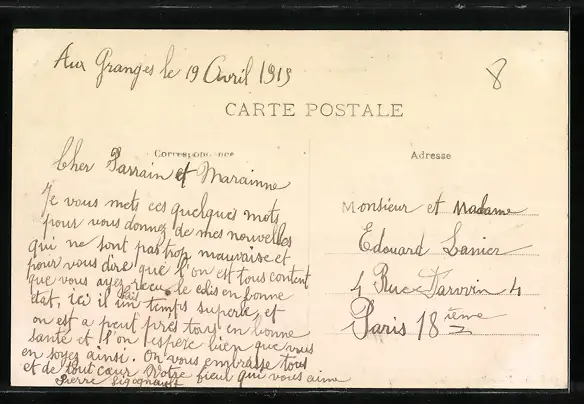 Aux Granges le 19 Avril 1919
8
CARTE POSTALE
Correspondance
Adresse
Cher Parrain et Marainne
Je vous mets ces quelques mots
pour vous donnez de mes nouvelles
qui ne sont pas trop mauvaise et
pour vous dire que l'on est tous content
que vous ayez reçu le colis en bonne
état, ici il fais un temps superbe, et
on est a peut près tous en bonne
santé et l'on espère bien que vous
en soyez ainsi. On vous embrasse tous
et de tout cœur Votre fieul qui vous aime
Pierre
Monsieur et Madame
Edouard Lanier
4 Rue Darwin 4
Paris 18 ième